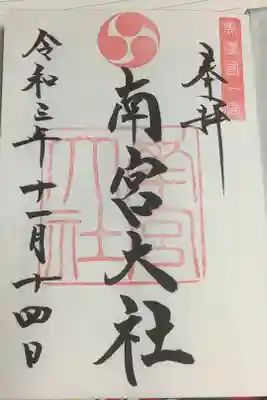 美濃国一宮
奉拝
南宮大社
南宮大社
令和三年十一月十四日